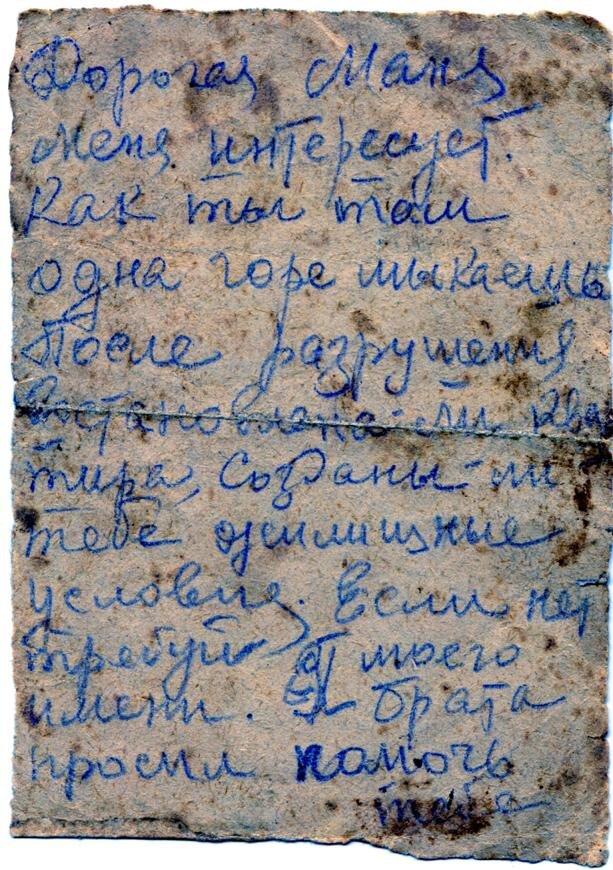 Дорогая Маня
меня интересует.
Как ты там
одна горе мыкаешь
После разрушения
востановлена-ли ква
тира, созданы-ли
тебе жилищные
условия. Если нет
требуй от моего
имени. Я брата
просил помочь
тебе